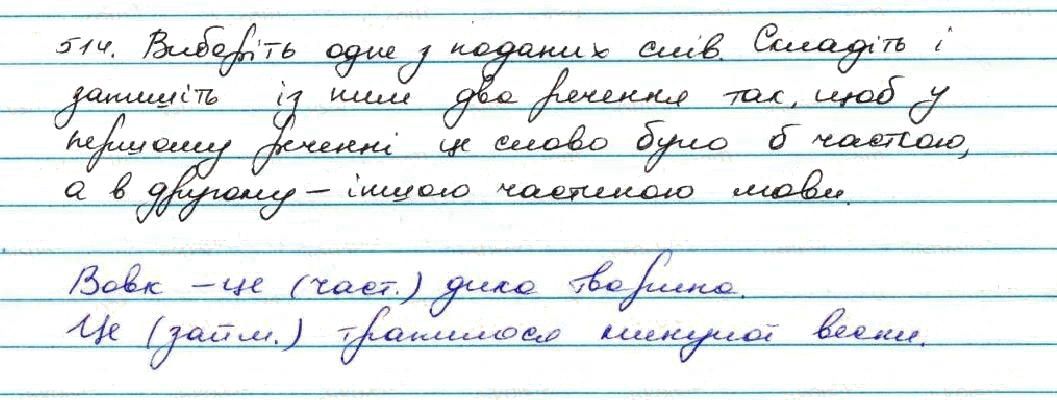 514. Виберіть одне з поданих слів. Складіть і
запишіть із ним два речення так, щоб у
першому реченні це слово було б часткою,
а в другому – іншою частиною мови.
Вовк – це (част.) дика тварина.
Це (займ.) трапилося минулої весни.